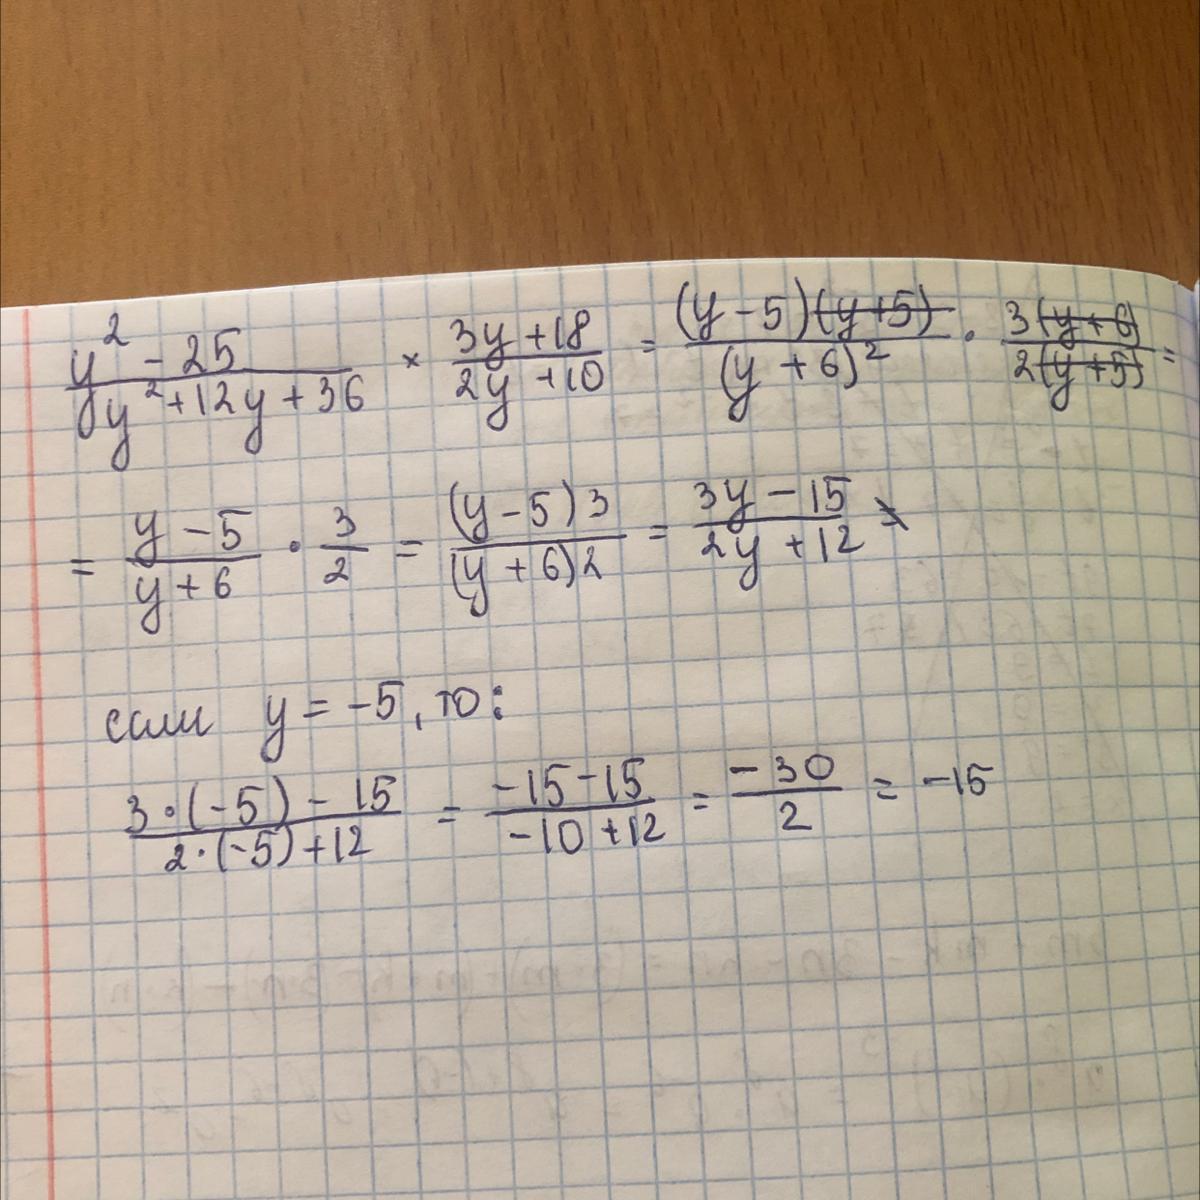 (y² - 25)/(y² + 12y + 36) × (3y + 18)/(2y + 10) = ((y - 5)(y + 5))/((y + 6)²) · (3(y + 6))/(2(y + 5)) =
= (y - 5)/(y + 6) · 3/2 = ((y - 5)3)/((y + 6)2) = (3y - 15)/(2y + 12)
если y = -5, то:
(3·(-5) - 15)/(2·(-5) + 12) = (-15 - 15)/(-10 + 12) = (-30)/2 = -15